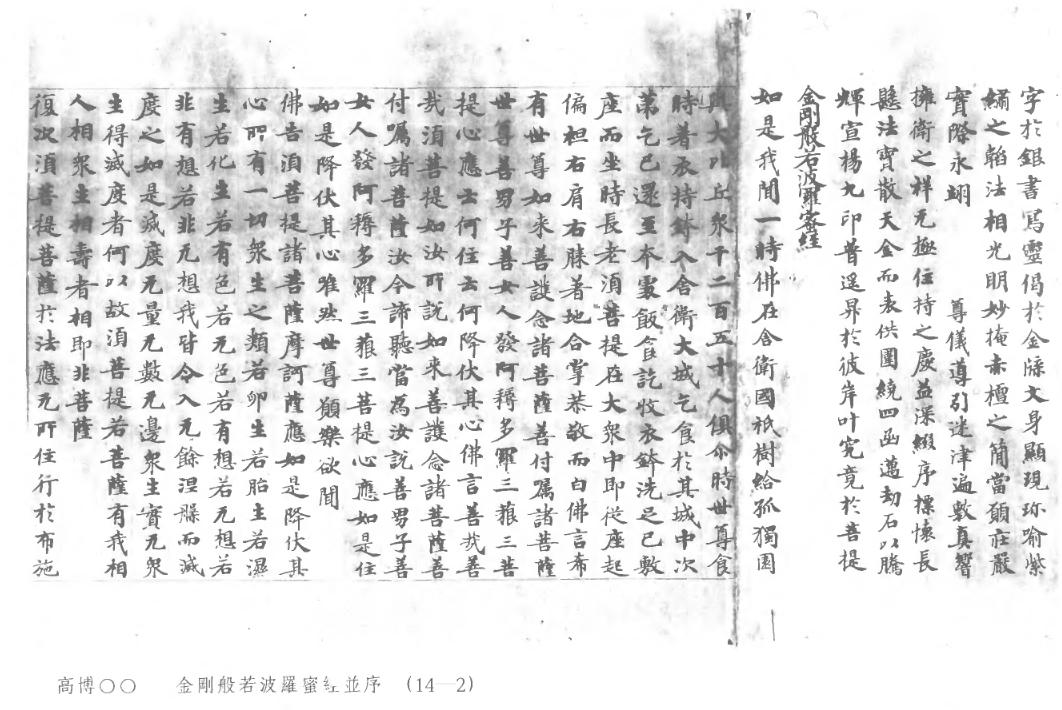 字於銀書寫靈偈於金牒文身顯現珎喻紫
繡之韜法相光明妙掩赤檀之簡當願莊嚴
實際永翊 尊儀導引迷津遍敷真響
擁衛之祥无極住持之慶益深綴序摽懷長
懸法寶散天金而表供圍繞四函邁劫石以騰
輝宣揚九印普遥昇於彼岸叶究竟於菩提
金剛般若波羅蜜經
如是我聞一時佛在舍衛國祇樹給孤獨園
與大比丘衆千二百五十人俱尒時世尊食
時著衣持鉢入舍衛大城乞食於其城中次
第乞已還至本處飯食訖收衣鉢洗足已敷
座而坐時長老須菩提在大衆中即從座起
偏袒右肩右膝著地合掌恭敬而白佛言希
有世尊如来善護念諸菩薩善付嘱諸菩薩
世尊善男子善女人發阿耨多羅三藐三菩
提心應云何住云何降伏其心佛言善哉善
哉須菩提如汝所說如来善護念諸菩薩善
付嘱諸菩薩汝今諦聽當為汝說善男子善
女人發阿耨多羅三藐三菩提心應如是住
如是降伏其心唯然世尊願樂欲聞
佛告須菩提諸菩薩摩訶薩應如是降伏其
心所有一切衆生之類若卵生若胎生若濕
生若化生若有色若无色若有想若无想若
非有想若非无想我皆令入无餘涅槃而滅
度之如是滅度无量无數无邊衆生實无衆
生得滅度者何以故須菩提若菩薩有我相
人相衆生相壽者相即非菩薩
復次須菩提菩薩於法應无所住行於布施
高博○○ 金剛般若波羅蜜經並序 (14—2)